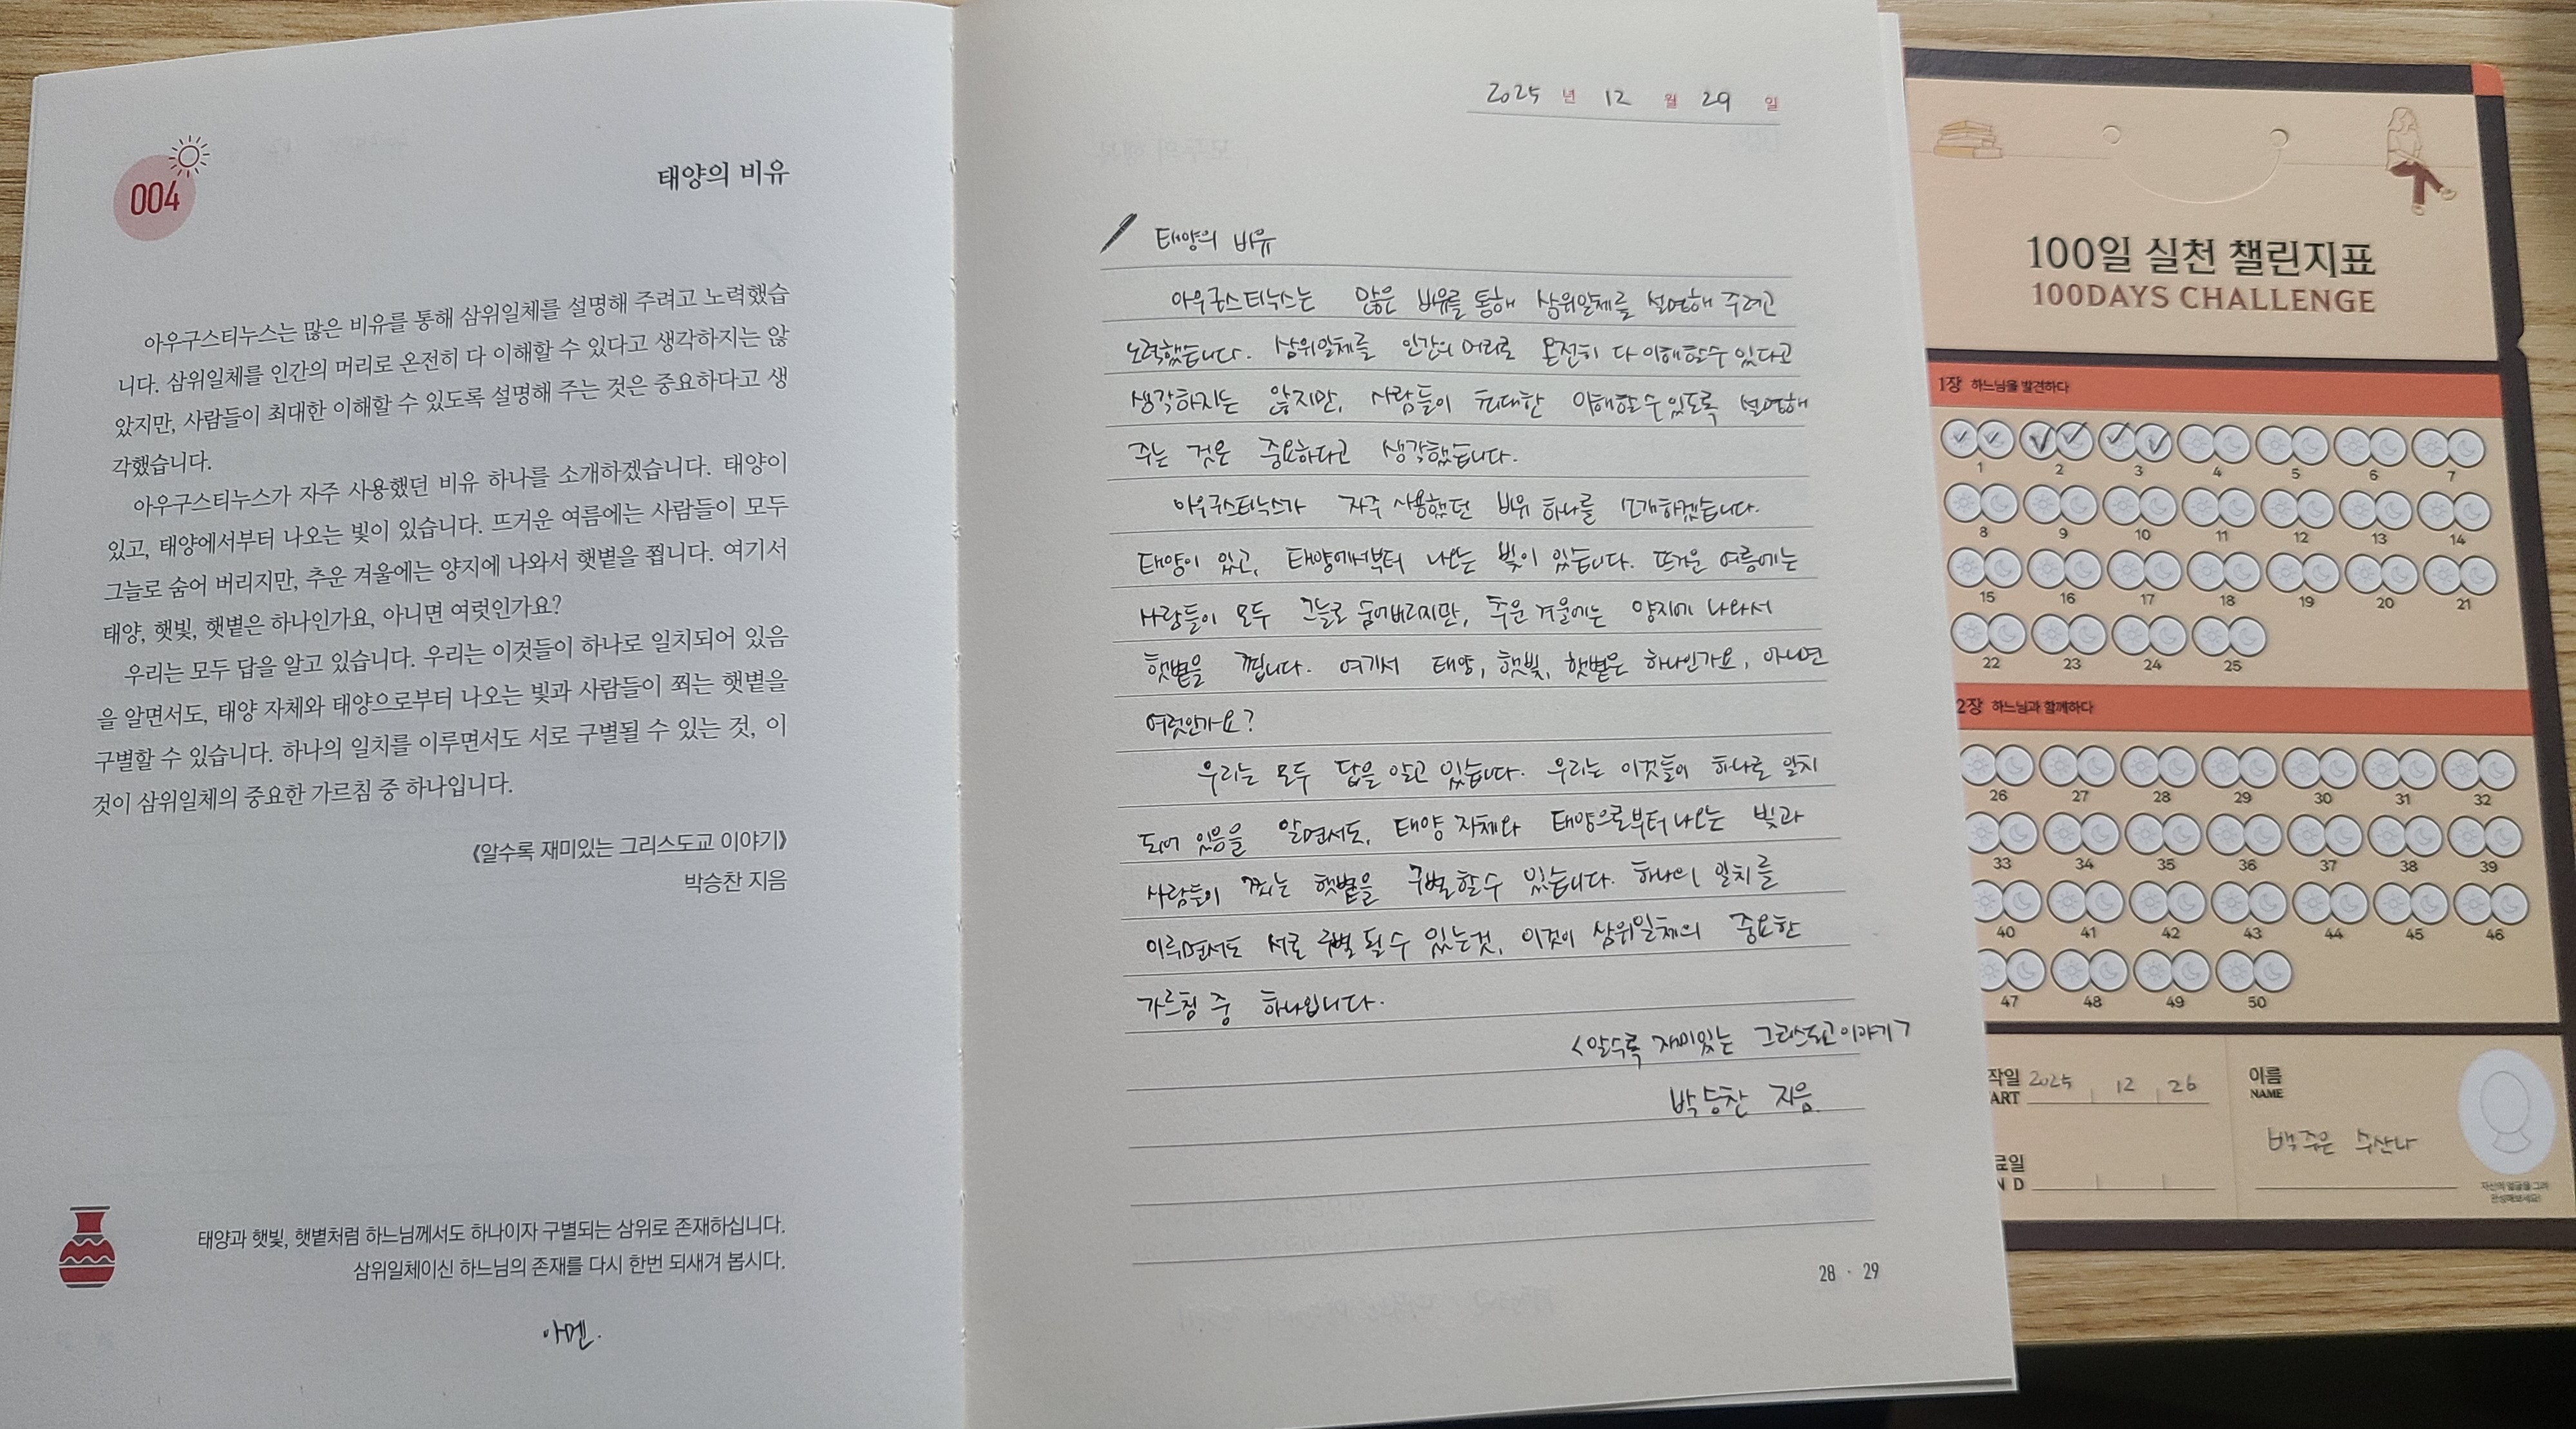 004
태양의 비유
아우구스티누스는 많은 비유를 통해 삼위일체를 설명해 주려고 노력했습
니다. 삼위일체를 인간의 머리로 온전히 다 이해할 수 있다고 생각하지는 않
았지만, 사람들이 최대한 이해할 수 있도록 설명해 주는 것은 중요하다고 생
각했습니다.
아우구스티누스가 자주 사용했던 비유 하나를 소개하겠습니다. 태양이
있고, 태양에서부터 나오는 빛이 있습니다. 뜨거운 여름에는 사람들이 모두
그늘로 숨어 버리지만, 추운 겨울에는 양지에 나와서 햇볕을 쬡니다. 여기서
태양, 햇빛, 햇볕은 하나인가요, 아니면 여럿인가요?
우리는 모두 답을 알고 있습니다. 우리는 이것들이 하나로 일치되어 있음
을 알면서도, 태양 자체와 태양으로부터 나오는 빛과 사람들이 쬐는 햇볕을
구별할 수 있습니다. 하나의 일치를 이루면서도 서로 구별될 수 있는 것, 이
것이 삼위일체의 중요한 가르침 중 하나입니다.
《알수록 재미있는 그리스도교 이야기》
박승찬 지음
태양과 햇빛, 햇볕처럼 하느님께서도 하나이자 구별되는 삼위로 존재하십니다.
삼위일체이신 하느님의 존재를 다시 한번 되새겨 봅시다.
아멘.
2025 년 12 월 29 일
태양의 비유
아우구스티누스는 많은 비유를 통해 삼위일체를 설명해 주려고
노력했습니다. 삼위일체를 인간의 머리로 온전히 다 이해할 수 있다고
생각하지는 않지만, 사람들이 최대한 이해할 수 있도록 설명해
주는 것은 중요하다고 생각했습니다.
아우구스티누스가 자주 사용했던 비유 하나를 소개하겠습니다.
태양이 있고, 태양에서부터 나오는 빛이 있습니다. 뜨거운 여름에는
사람들이 모두 그늘로 숨어버리지만, 추운 겨울에는 양지에 나와서
햇볕을 쬡니다. 여기서 태양, 햇빛, 햇볕은 하나인가요, 아니면
여럿인가요?
우리는 모두 답을 알고 있습니다. 우리는 이것들이 하나로 일치
되어 있음을 알면서도, 태양 자체와 태양으로부터 나오는 빛과
사람들이 쬐는 햇볕을 구별할 수 있습니다. 하나의 일치를
이루면서도 서로 구별 될 수 있는 것, 이것이 삼위일체의 중요한
가르침 중 하나입니다.
<알수록 재미있는 그리스도교 이야기>
박승찬 지음.
28 · 29
100일 실천 챌린지표
100DAYS CHALLENGE
1장 하느님을 발견하다
1 2 3 4 5 6 7
8 9 10 11 12 13 14
15 16 17 18 19 20 21
22 23 24 25
2장 하느님과 함께하다
26 27 28 29 30 31 32
33 34 35 36 37 38 39
40 41 42 43 44 45 46
47 48 49 50
작일 2025 12 26
ART
이름
NAME
백주은 수산나
료일
N D
자신의 얼굴을 그려
완성해보세요!